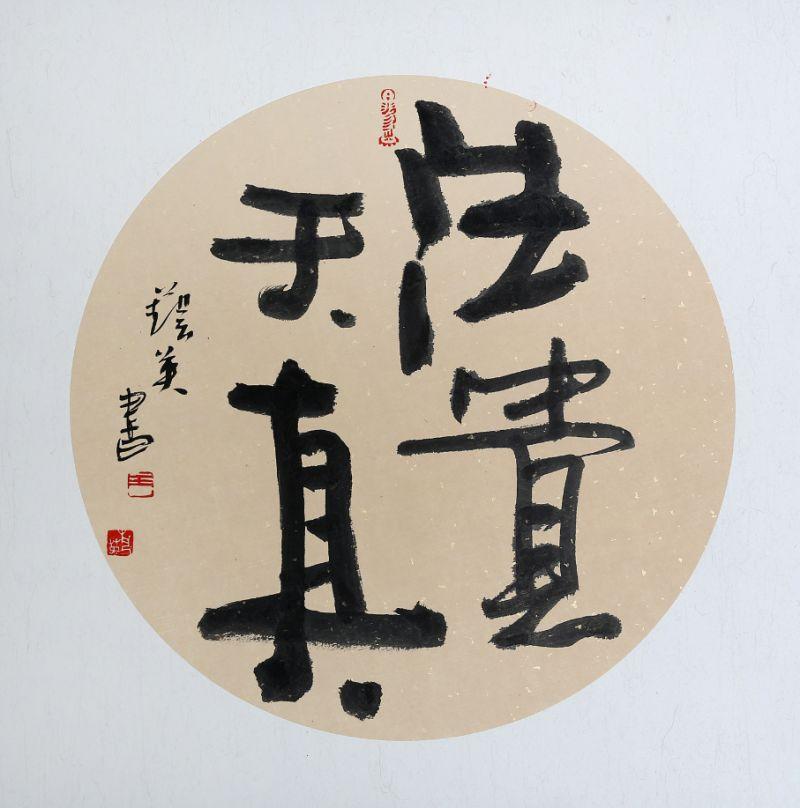 法貴
天真
藝英書